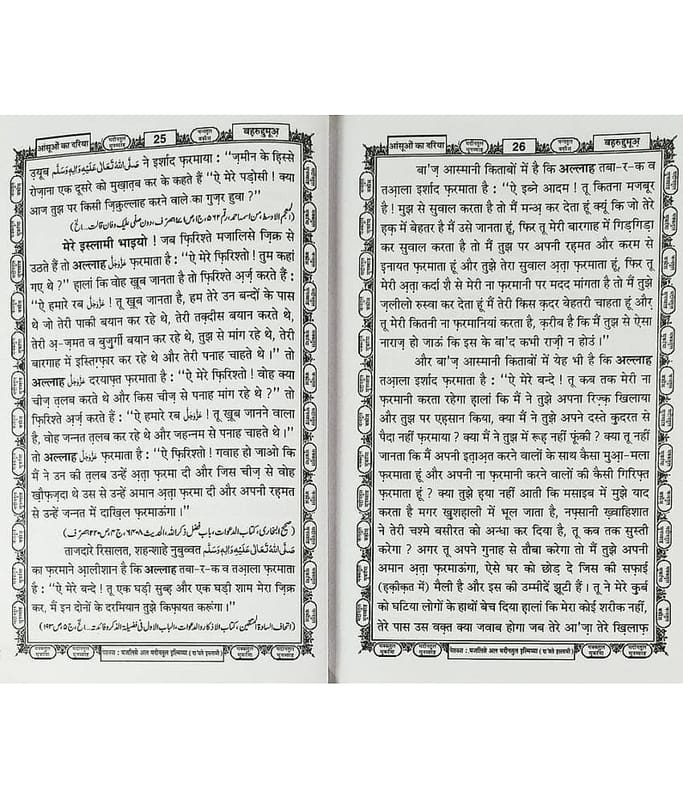 आंसूओं का दरिया
25
बहरुद्दुमूअ़
ने इर्शाद फ़रमाया : “ज़मीन के हिस्से
रोज़ाना एक दूसरे को मुख़ात़ब कर के कहते हैं “ऐ मेरे पड़ोसी ! क्या
आज तुझ पर किसी ज़िक्रुल्लाह करने वाले का गुज़र हुवा ?”
मेरे इस्लामी भाइयो ! जब फ़िरिश्ते मजालिसे ज़िक्र से
उठते हैं तो अल्लाह عَزَّوَجَلَّ फ़रमाता है : “ऐ मेरे फ़िरिश्तो ! तुम कहां
गए थे ?” हालां कि वोह ख़ूब जानता है तो फ़िरिश्ते अ़र्ज़ करते हैं :
“ऐ हमारे रब عَزَّوَجَلَّ ! तू ख़ूब जानता है, हम तेरे उन बन्दों के पास
थे जो तेरी पाकी बयान कर रहे थे, तेरी तक़्दीस बयान करते थे,
तेरी अ़-ज़मत व बुज़ुर्गी बयान कर रहे थे, तुझ से मांग रहे थे, तेरी
बारगाह में इस्तिग़्फ़ार कर रहे थे और तेरी पनाह चाहते थे ।” तो
अल्लाह عَزَّوَجَلَّ दरयाफ़्त फ़रमाता है : “ऐ मेरे फ़िरिश्तो ! वोह क्या
चीज़ त़लब करते थे और किस चीज़ से पनाह मांग रहे थे ?” तो
फ़िरिश्ते अ़र्ज़ करते हैं : “ऐ हमारे रब عَزَّوَجَلَّ ! तू ख़ूब जानने वाला
है, वोह जन्नत त़लब कर रहे थे और जहन्नम से पनाह चाहते थे ।”
तो अल्लाह عَزَّوَجَلَّ फ़रमाता है : “ऐ फ़िरिश्तो ! गवाह हो जाओ कि
मैं ने उन की त़लब उन्हें अ़त़ा फ़रमा दी और जिस चीज़ से वोह
ख़ौफ़ज़दा थे उस से उन्हें अमान अ़त़ा फ़रमा दी और अपनी रह़मत
से उन्हें जन्नत में दाख़िल फ़रमाऊंगा ।”
ताजदारे रिसालत, शहन्शाहे नुबुव्वत صَلَّى اللهُ تَعَالٰى عَلَيْهِ وَاٰلِهٖ وَسَلَّم
का फ़रमाने आ़लीशान है कि अल्लाह तबा-र-क व तआ़ला फ़रमाता
है : “ऐ मेरे बन्दे ! तू एक घड़ी सुब्ह़ और एक घड़ी शाम मेरा ज़िक्र
कर, मैं इन दोनों के दरमियान तुझे किफ़ायत करूंगा ।”
पेशकश : मजलिसे अल मदीनतुल इल्मिय्या (दा'वते इस्लामी)
आंसूओं का दरिया
26
बहरुद्दुमूअ़
बा'ज़ आस्मानी किताबों में है कि अल्लाह तबा-र-क व
तआ़ला इर्शाद फ़रमाता है : “ऐ इब्ने आदम ! तू कितना मजबूर
है ! मुझ से सुवाल करता है तो मैं मन्अ़ कर देता हूं क्यूं कि जो तेरे
ह़क़ में बेहतर है मैं उसे जानता हूं, फिर तू मेरी बारगाह में गिड़गिड़ा
कर सुवाल करता है तो मैं तुझ पर अपनी रह़मत और करम से
इनायत फ़रमाता हूं और तुझे तेरा सुवाल अ़त़ा फ़रमाता हूं, फिर तू
मेरी अ़त़ा कर्दा शै से मेरी ना फ़रमानी पर मदद मांगता है तो मैं तुझे
ज़लीलो रुस्वा कर देता हूं मैं तेरी किस क़दर बेहतरी चाहता हूं और
तू मेरी कितनी ना फ़रमानियां करता है, क़रीब है कि मैं तुझ से ऐसा
नाराज़ हो जाऊं कि इस के बा'द कभी राज़ी न होउं ।”
और बा'ज़ आस्मानी किताबों में येह भी है कि अल्लाह
तआ़ला इर्शाद फ़रमाता है : “ऐ मेरे बन्दे ! तू कब तक मेरी ना
फ़रमानी करता रहेगा हालां कि मैं ने तुझे अपना रिज़्क़ खिलाया
और तुझ पर एह़सान किया, क्या मैं ने तुझे अपने दस्ते क़ुदरत से
पैदा नहीं फ़रमाया ? क्या मैं ने तुझ में रूह़ नहीं फूंकी ? क्या तू नहीं
जानता कि मैं अपनी इत़ाअ़त करने वालों के साथ कैसा मुआ़-मला
फ़रमाता हूं और अपनी ना फ़रमानी करने वालों की कैसी गिरिफ़्त
फ़रमाता हूं ? क्या तुझे ह़या नहीं आती कि मसाइब में मुझे याद
करता है मगर खुशह़ाली में भूल जाता है, नफ़्सानी ख़्वाहिशात
ने तेरी चश्मे बसीरत को अन्धा कर दिया है, तू कब तक सुस्ती
करेगा ? अगर तू अपने गुनाह से तौबा करेगा तो मैं तुझे अपनी
अमान अ़त़ा फ़रमाऊंगा, ऐसे घर को छोड़ दे जिस की सफ़ाई
(ह़क़ीक़त में) मैली है और इस की उम्मीदें झूटी हैं । तू ने मेरे क़ुर्ब
को घटिया लोगों के हाथों बेच दिया हालां कि मेरा कोई शरीक नहीं,
तेरे पास उस वक़्त क्या जवाब होगा जब तेरे आ'ज़ा तेरे ख़िलाफ़
पेशकश : मजलिसे अल मदीनतुल इल्मिय्या (दा'वते इस्लामी)